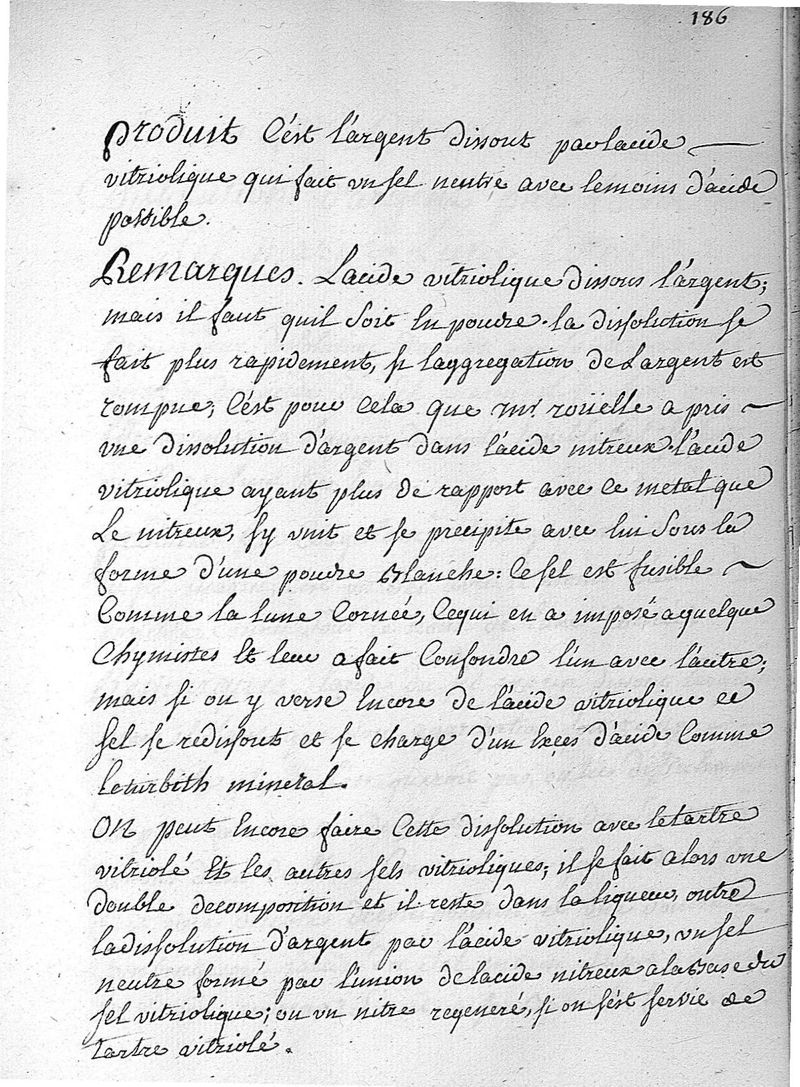 186
Produit C'est l'argent dissout par lacide
vitriolique qui fait vn sel neutre avec lemoins d'acide
possible.
Remarques. Lacide vitriolique dissous l'argent;
mais il faut quil soit En poudre. la dissolution se
fait plus rapidement, si laggregation de Largent est
rompue; C'est pour Cela que mr. roüelle a pris
vne dissolution d'argent dans l'acide nitreux. l'acide
vitriolique ayant plus de rapport avec ce metal que
Le nitreux, s'y vnit et se precipite avec lui Sous la
forme d'une poudre Blanche: Ce sel est fusible
Comme la lune Cornée, Cequi en a imposé a quelque
Chymistes Et leur a fait Confondre l'un avec l'autre;
mais si on y verse Encore de l'acide vitriolique ce
sel se redissout et se charge d'un Exces d'acide Comme
leturbith mineral.
On peut Encore faire Cette dissolution avec letartre
vitriolé Et les autres sels vitrioliques; il se fait alors vne
double decomposition et il reste dans la liqueur, outre
ladissolution d'argent par l'acide vitriolique, vn sel
neutre formé par l'union de lacide nitreux a la Base du
sel vitriolique; ou vn nitre regeneré, si on s'est servie de
tartre vitriolé.